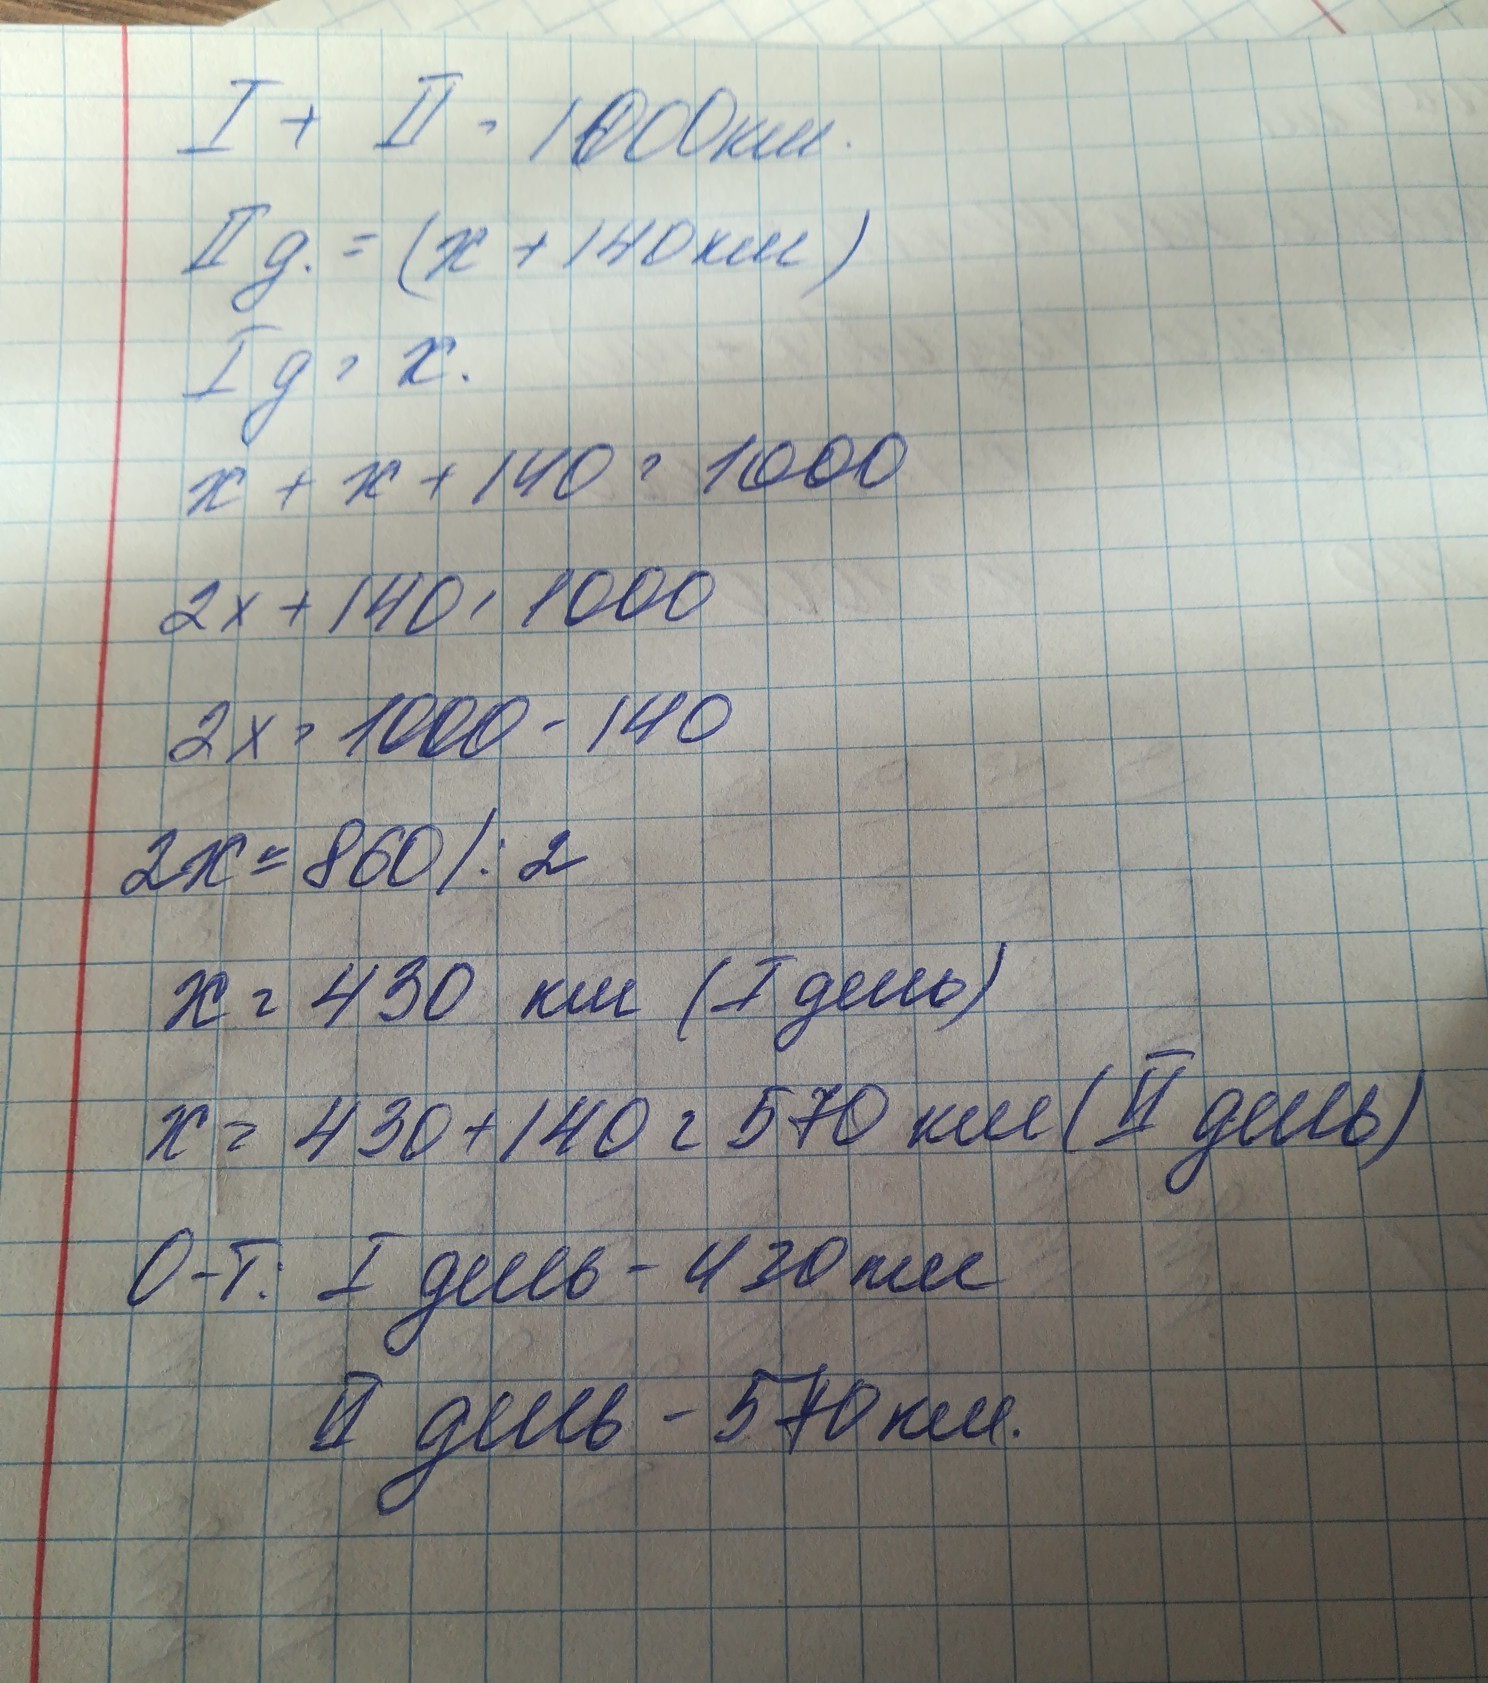 I + II = 1000км.
II д. = (x + 140км)
I д = x.
x + x + 140 = 1000
2x + 140 = 1000
2x = 1000 - 140
2x = 860 /: 2
x = 430 км (I день)
x = 430 + 140 = 570 км (II день)
О-т: I день - 430км
II день - 570км.